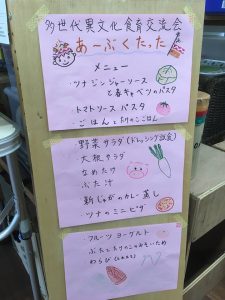 多世代異文化食育交流会
あ〜ぶくたった
メニュー
・ツナジンジャーソース
と春キャベツのパスタ
・トマトソースパスタ
・ごはん
野菜サラダ(ドレッシング数会)
大根サラダ
なめたけ
ぶた汁
新じゃがのカレー蒸し
・ツナのミニピザ
・フルーツヨーグルト
わらび